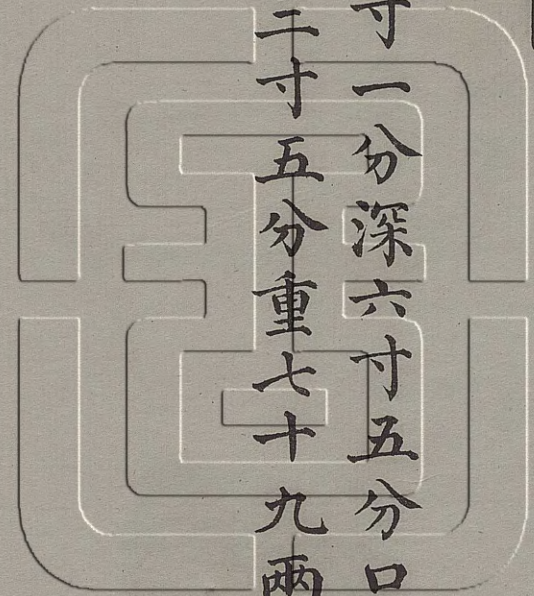 寸一分深六寸五分口
二寸五分重七十九兩